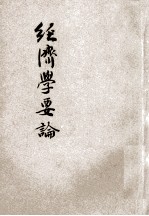 經濟學要論